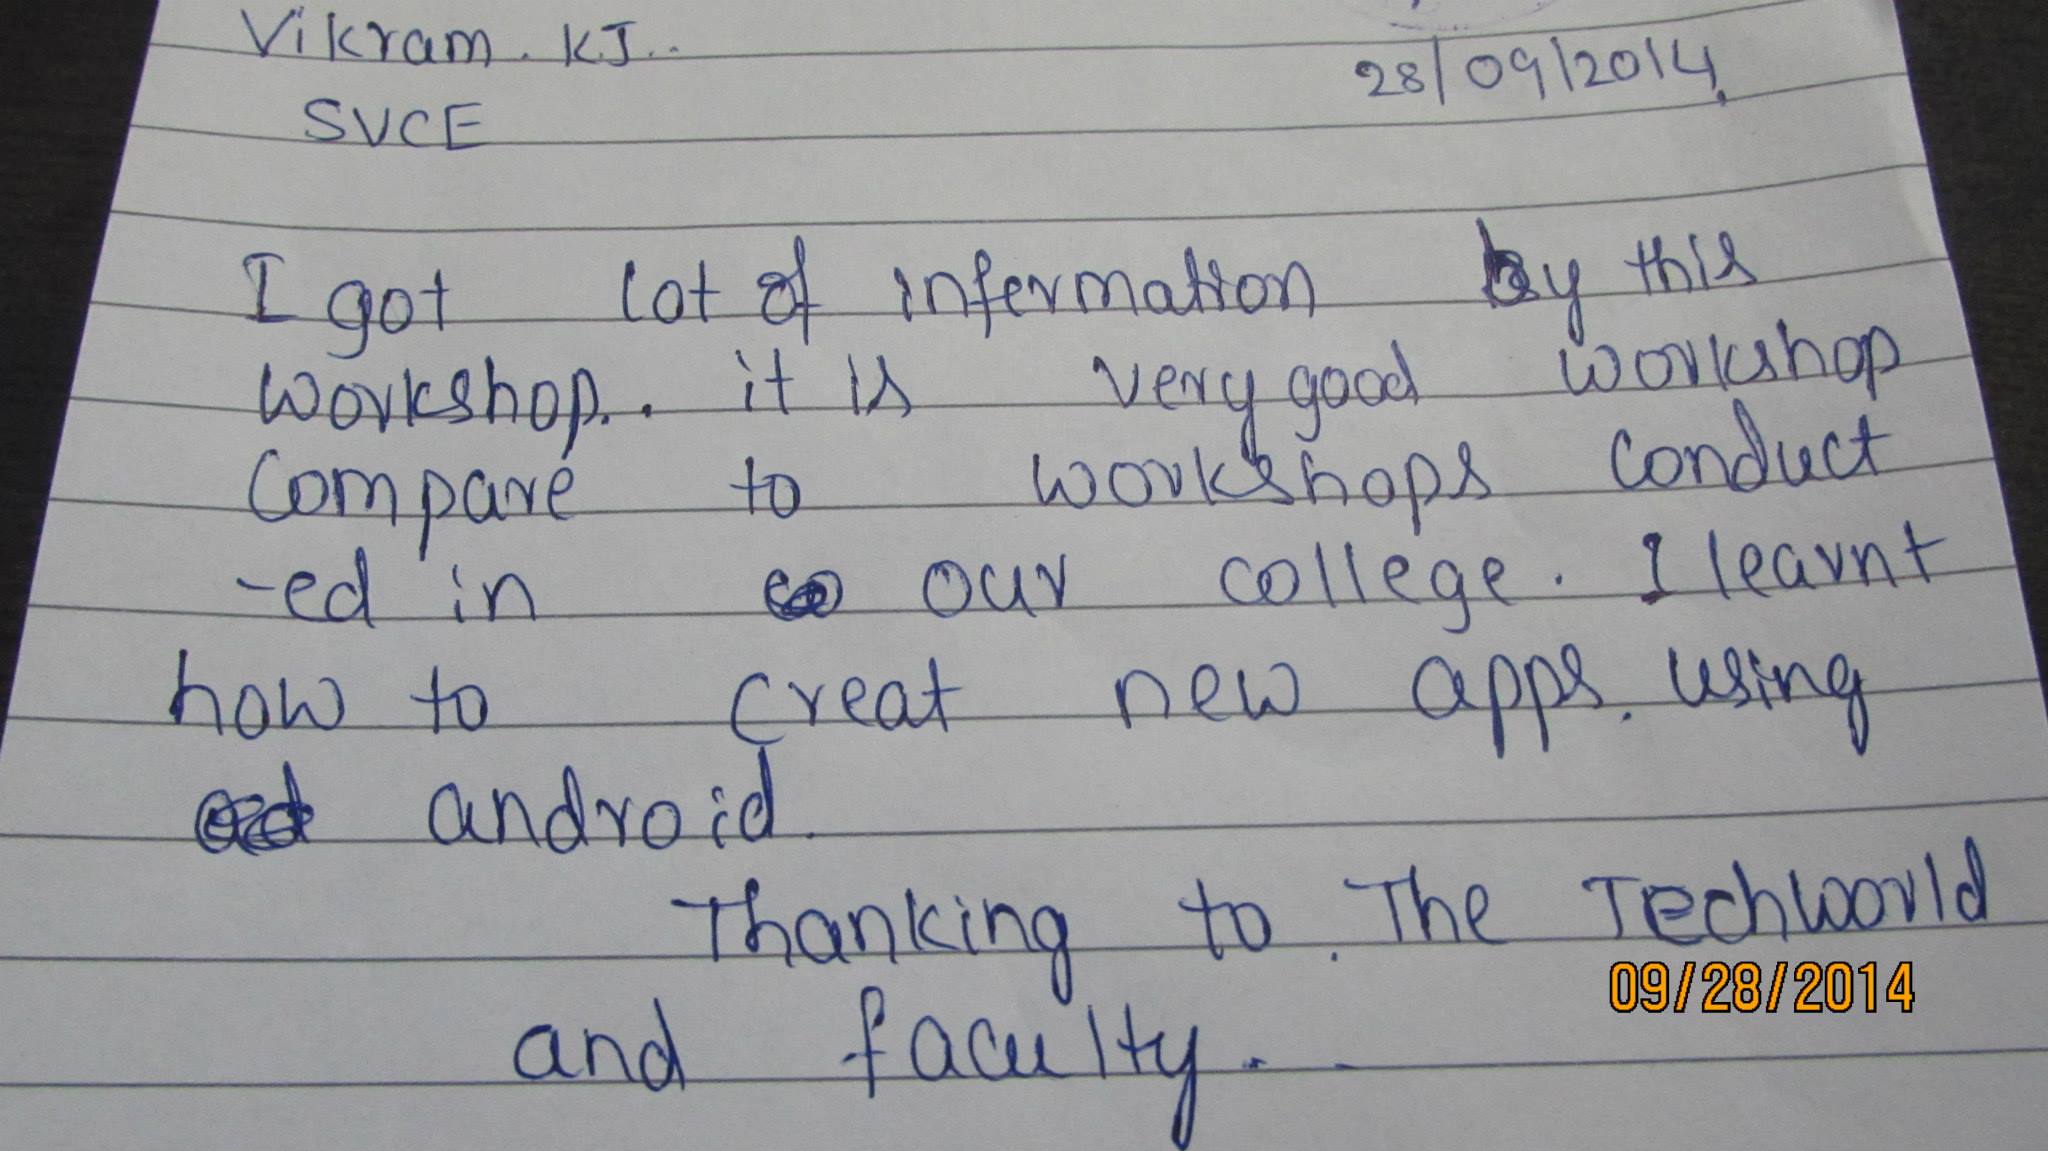 Vikram. KJ..
28/09/2014.
SVCE
I got lot of information by this
workshop.. it is very good workshop
Compare to workshops conduct
-ed in our college. I learnt
how to creat new apps. using
android.
Thanking to. The Techworld
09/28/2014
and faculty..